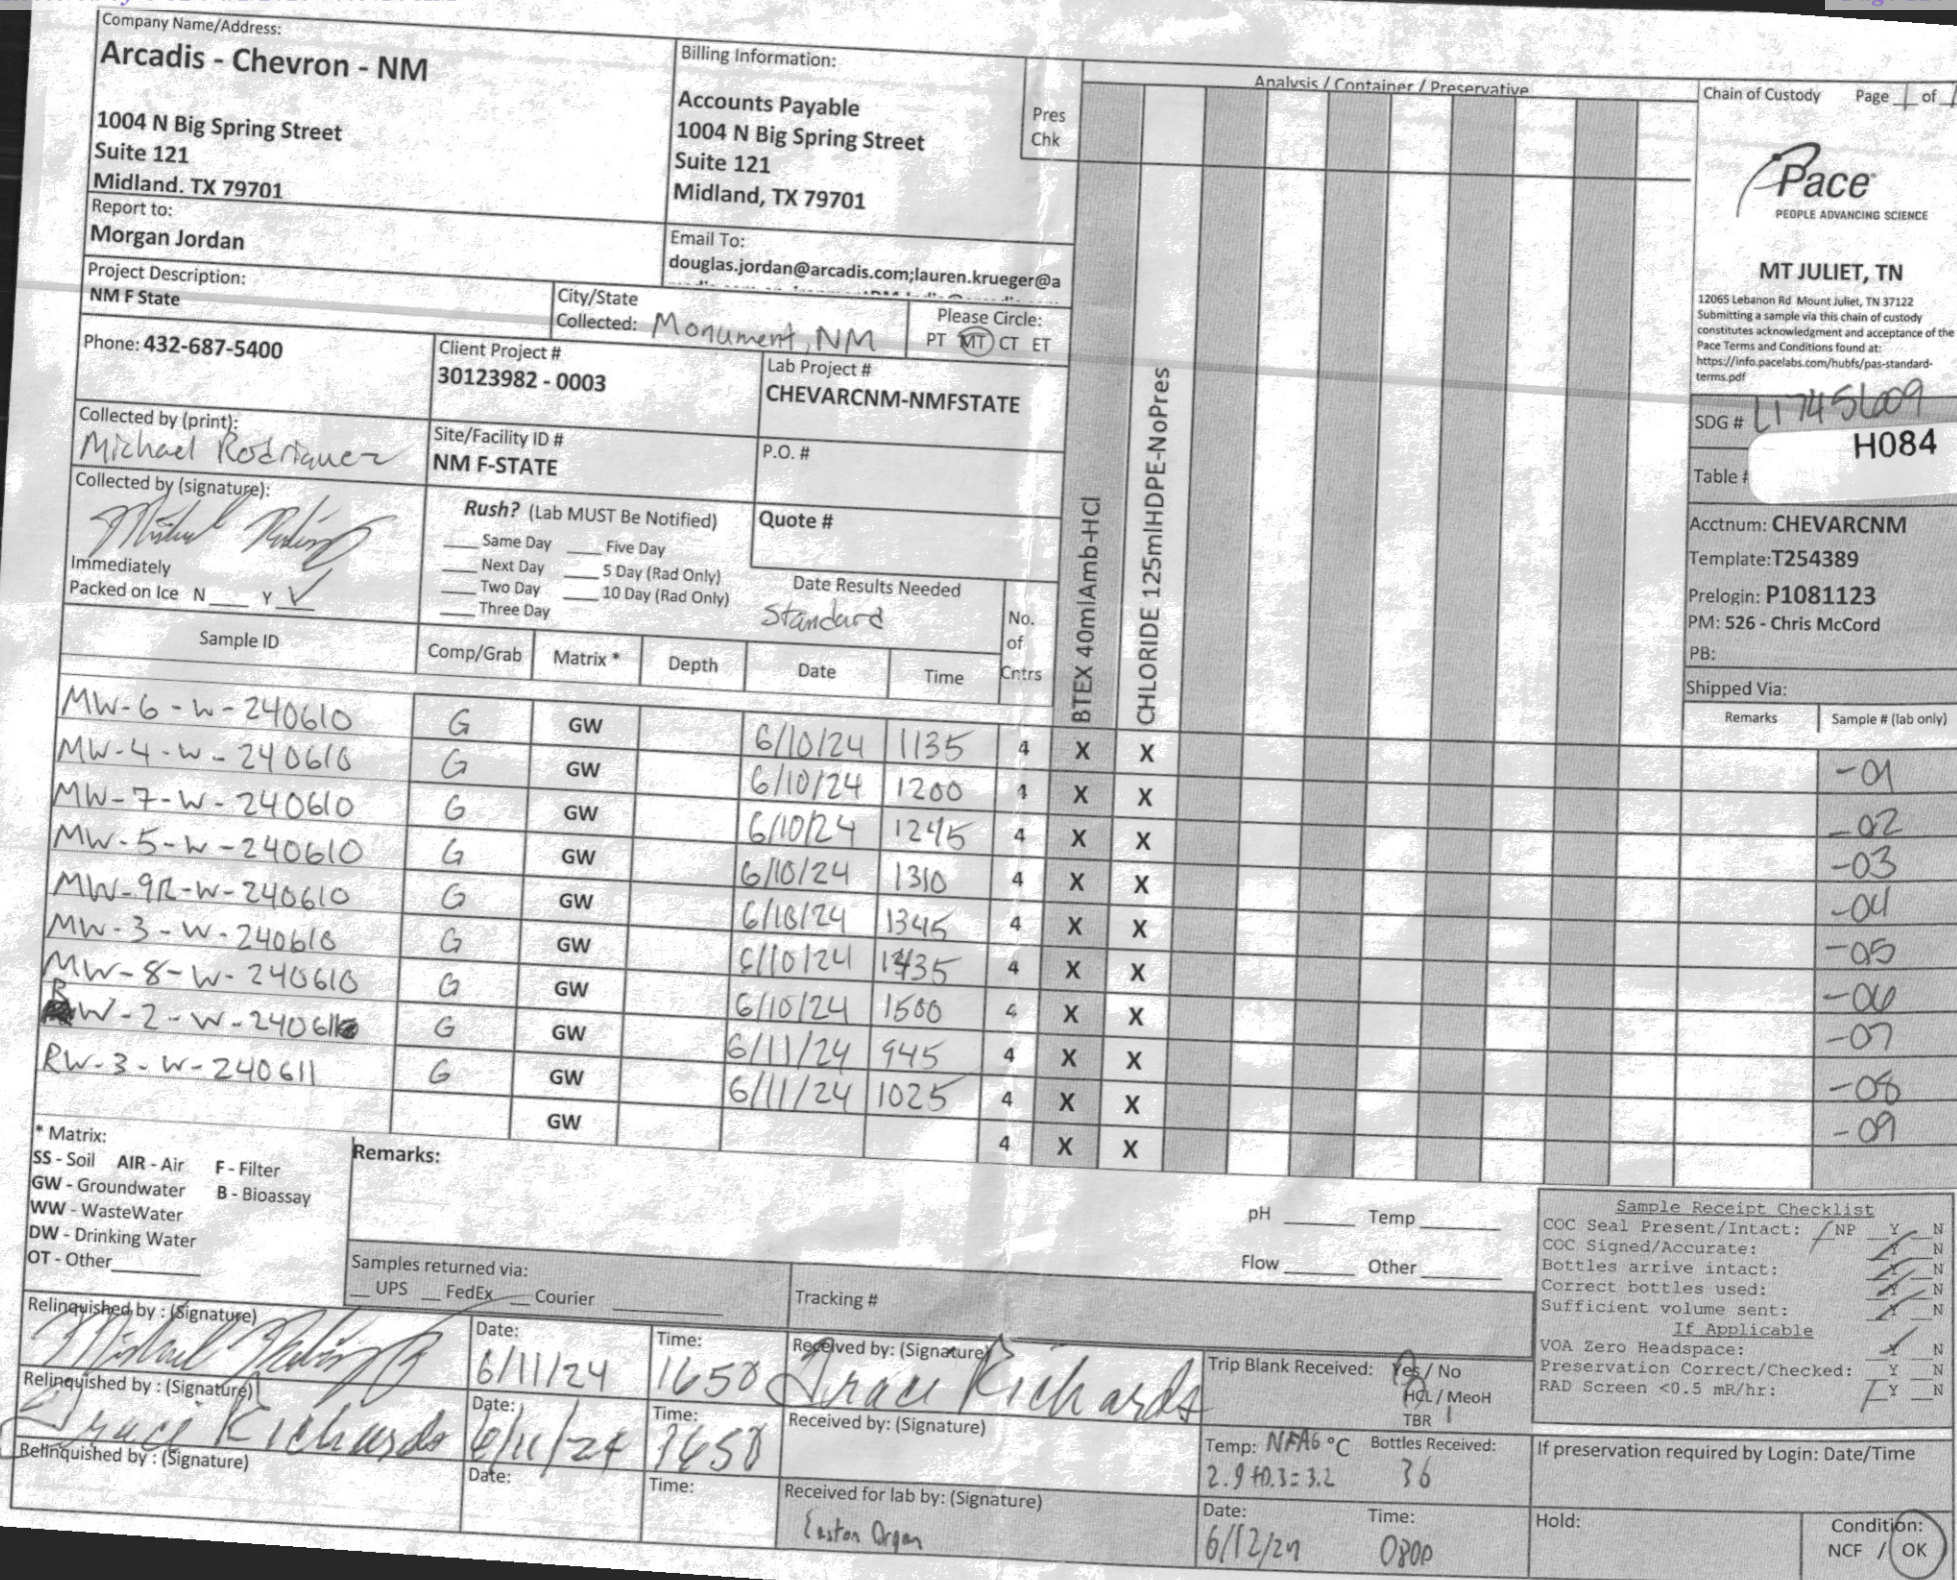 Company Name/Address:
Arcadis - Chevron - NM
1004 N Big Spring Street
Suite 121
Midland. TX 79701
Billing Information:
Accounts Payable
1004 N Big Spring Street
Suite 121
Midland, TX 79701
Pres
Chk
Analysis / Container / Preservative
Chain of Custody Page 1 of
Pace
PEOPLE ADVANCING SCIENCE
MT JULIET, TN
12065 Lebanon Rd Mount Juliet, TN 37122
Submitting a sample via this chain of custody
constitutes acknowledgment and acceptance of the
Pace Terms and Conditions found at:
https://info.pacelabs.com/hubfs/pas-standard-
terms.pdf
Report to:
Morgan Jordan
Email To:
douglas.jordan@arcadis.com;lauren.krueger@a
Project Description:
NM F State
City/State
Collected: Monument, NM
Please Circle:
PT MT CT ET
Phone: 432-687-5400
Client Project #
30123982 - 0003
Lab Project #
CHEVARCNM-NMFSTATE
Collected by (print):
Michael Rodriguez
Site/Facility ID #
NM F-STATE
P.O. #
Collected by (signature):
Immediately
Packed on Ice N ___ Y ✓
Rush? (Lab MUST Be Notified)
___ Same Day ___ Five Day
___ Next Day ___ 5 Day (Rad Only)
___ Two Day ___ 10 Day (Rad Only)
___ Three Day
Quote #
Date Results Needed
Standard
No.
of
Cntrs
BTEX 40mlAmb-HCl
CHLORIDE 125mlHDPE-NoPres
SDG # L1745609
H084
Table #
Acctnum: CHEVARCNM
Template:T254389
Prelogin: P1081123
PM: 526 - Chris McCord
PB:
Shipped Via:
Remarks Sample # (lab only)
Sample ID Comp/Grab Matrix * Depth Date Time
MW-6-W-240610 G GW 6/10/24 1135 4 X X -01
MW-4-W-240610 G GW 6/10/24 1200 4 X X -02
MW-7-W-240610 G GW 6/10/24 1245 4 X X -03
MW-5-W-240610 G GW 6/10/24 1310 4 X X -04
MW-9R-W-240610 G GW 6/10/24 1345 4 X X -05
MW-3-W-240610 G GW 6/10/24 1435 4 X X -06
MW-8-W-240610 G GW 6/10/24 1500 4 X X -07
RW-2-W-240611 G GW 6/11/24 945 4 X X -08
RW-3-W-240611 G GW 6/11/24 1025 4 X X -09
GW 4 X X
* Matrix:
SS - Soil AIR - Air F - Filter
GW - Groundwater B - Bioassay
WW - WasteWater
DW - Drinking Water
OT - Other
Remarks:
pH ___ Temp ___
Flow ___ Other ___
Samples returned via:
__ UPS __ FedEx __ Courier
Tracking #
Sample Receipt Checklist
COC Seal Present/Intact: NP Y N
COC Signed/Accurate: Y N
Bottles arrive intact: Y N
Correct bottles used: Y N
Sufficient volume sent: Y N
If Applicable
VOA Zero Headspace: Y N
Preservation Correct/Checked: Y N
RAD Screen <0.5 mR/hr: Y N
Relinquished by : (Signature)
Date:
6/11/24
Time:
1650
Received by: (Signature)
Grace Richards
Trip Blank Received: Yes / No
HCL / MeoH
TBR 1
Relinquished by : (Signature)
Grace Richards
Date:
6/11/24
Time:
1650
Received by: (Signature)
Temp: NFA6 °C Bottles Received:
2.9+0.3=3.2 36
If preservation required by Login: Date/Time
Relinquished by : (Signature)
Date:
Time:
Received for lab by: (Signature)
Easton Organ
Date: Time:
6/12/24 0800
Hold:
Condition:
NCF / OK